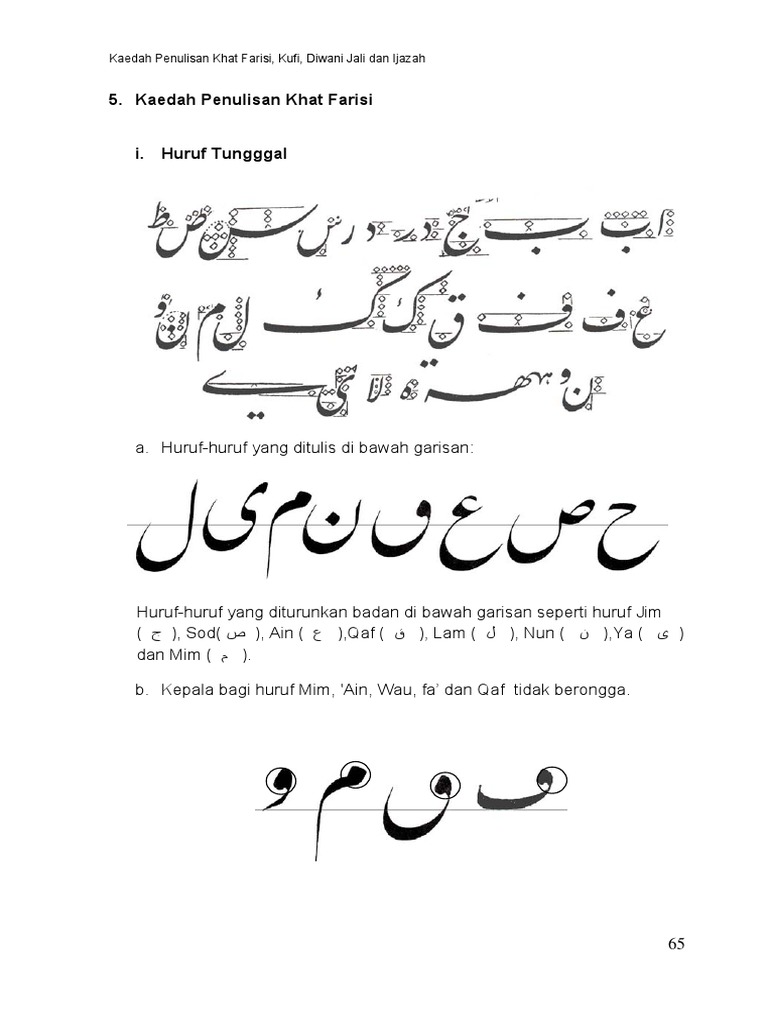 Kaedah Penulisan Khat Farisi, Kufi, Diwani Jali dan Ijazah
5. Kaedah Penulisan Khat Farisi
i. Huruf Tungggal
ا ب ب ج د ر د ر س س ص ط
ع ف ف ق ك ك ل م ن و
ن و ه ه ة ه لا ي ي
a. Huruf-huruf yang ditulis di bawah garisan:
ح ص ع ق ن م ى ل
Huruf-huruf yang diturunkan badan di bawah garisan seperti huruf Jim
( ج ), Sod( ص ), Ain ( ع ),Qaf ( ق ), Lam ( ل ), Nun ( ن ),Ya ( ى )
dan Mim ( م ).
b. Kepala bagi huruf Mim, 'Ain, Wau, fa’ dan Qaf tidak berongga.
ف ق م و
65